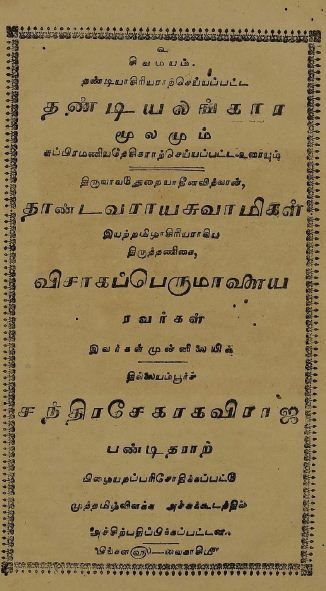 உ
சிவமயம்.
தண்டியாசிரியராற்செய்யப்பட்ட
தண்டியலங்கார
மூலமும்
சுப்பிரமணியதேசிகராற்செய்யப்பட்டஉரையும்
திருவாவடுதுறையாதீனவித்வான்,
தாண்டவராயசுவாமிகள்
இயற்றமிழாசிரியராகிய
திருத்தணிகை,
விசாகப்பெருமாளைய
ரவர்கள்
இவர்கள்முன்னிலையில்
தில்லையம்பூர்ச்
சந்திரசேகரகவிராஜ
பண்டிதராற்
பிழையறப்பரிசோதிக்கப்பட்டு
முத்தமிழ்விளக்க அச்சுக்கூடத்தில்
அச்சிற்பதிப்பிக்கப்பட்டன.